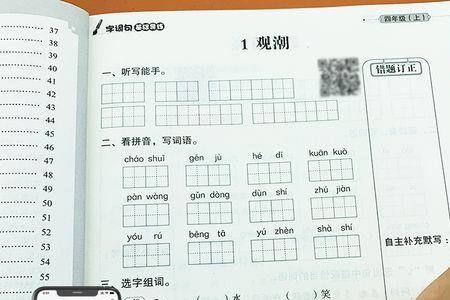 37
38
39
40
41
42
43
44
45
46
47
48
49
50
51
52
53
54
55
字词句 基础常练
四年级（上）
1 观潮
一、听写能手。
二、看拼音，写词语。
cháo shuǐ gēn jù hé dī kuān kuò
pàn wàng gǔn dòng dùn shí zhú jiàn
yóu rú bēng tā yú zhèn shà shí
三、选字组词。
（ ）水 （ ）笑
错题订正
自主补充默写：